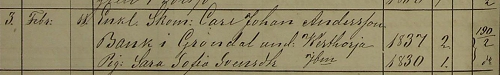 3. Febr. Enkl. Skom. Carl Johan Andersson
Bank i Gröndal und. Westhorja 1837 2. 190/2
Pig. Sara Sofia Svensson Ibm 1830 1.